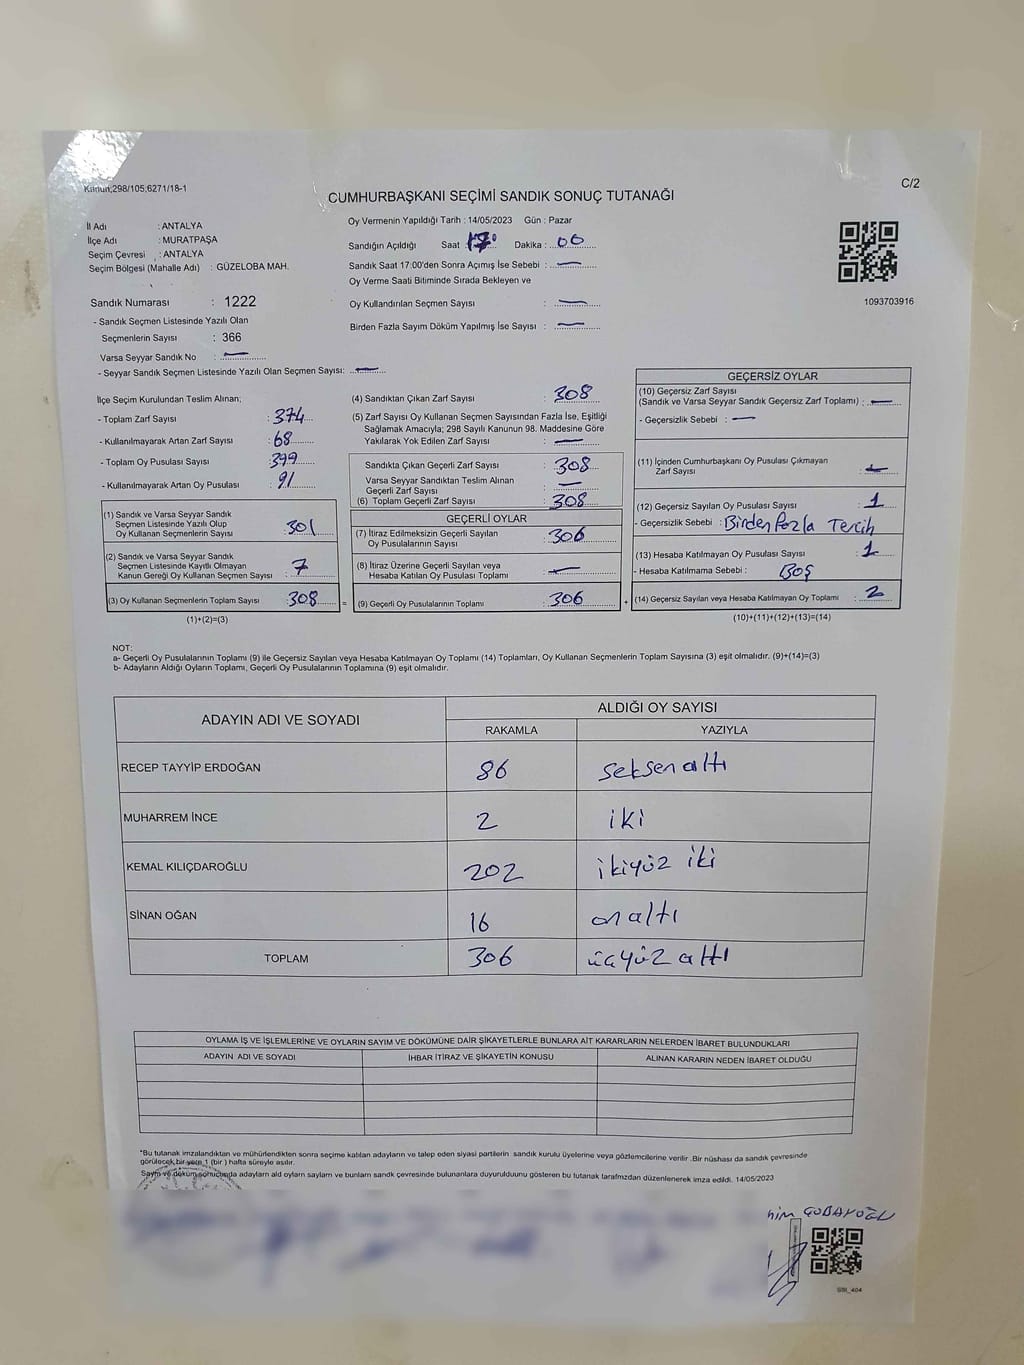 Kanun;298/105;6271/18-1
C/2
CUMHURBAŞKANI SEÇİMİ SANDIK SONUÇ TUTANAĞI
İl Adı : ANTALYA
İlçe Adı : MURATPAŞA
Seçim Çevresi : ANTALYA
Seçim Bölgesi (Mahalle Adı) : GÜZELOBA MAH.
Sandık Numarası : 1222
- Sandık Seçmen Listesinde Yazılı Olan
Seçmenlerin Sayısı : 366
Varsa Seyyar Sandık No : —
- Seyyar Sandık Seçmen Listesinde Yazılı Olan Seçmen Sayısı: —
Oy Vermenin Yapıldığı Tarih : 14/05/2023 Gün : Pazar
Sandığın Açıldığı Saat 17 Dakika : 00
Sandık Saat 17:00'den Sonra Açımış İse Sebebi : —
Oy Verme Saati Bitiminde Sırada Bekleyen ve
Oy Kullandırılan Seçmen Sayısı : —
Birden Fazla Sayım Döküm Yapılmış İse Sayısı : —
1093703916
İlçe Seçim Kurulundan Teslim Alınan;
- Toplam Zarf Sayısı : 374
- Kullanılmayarak Artan Zarf Sayısı : 68
- Toplam Oy Pusulası Sayısı : 399
- Kullanılmayarak Artan Oy Pusulası : 91
(1) Sandık ve Varsa Seyyar Sandık
Seçmen Listesinde Yazılı Olup
Oy Kullanan Seçmenlerin Sayısı : 301
(2) Sandık ve Varsa Seyyar Sandık
Seçmen Listesinde Kayıtlı Olmayan
Kanun Gereği Oy Kullanan Seçmen Sayısı : 7
(3) Oy Kullanan Seçmenlerin Toplam Sayısı : 308
(1)+(2)=(3)
(4) Sandıktan Çıkan Zarf Sayısı : 308
(5) Zarf Sayısı Oy Kullanan Seçmen Sayısından Fazla İse, Eşitliği
Sağlamak Amacıyla; 298 Sayılı Kanunun 98. Maddesine Göre
Yakılarak Yok Edilen Zarf Sayısı : —
Sandıkta Çıkan Geçerli Zarf Sayısı : 308
Varsa Seyyar Sandıktan Teslim Alınan
Geçerli Zarf Sayısı : —
(6) Toplam Geçerli Zarf Sayısı : 308
GEÇERLİ OYLAR
(7) İtiraz Edilmeksizin Geçerli Sayılan
Oy Pusulalarının Sayısı : 306
(8) İtiraz Üzerine Geçerli Sayılan veya
Hesaba Katılan Oy Pusulası Toplamı : —
= (9) Geçerli Oy Pusulalarının Toplamı : 306 +
GEÇERSİZ OYLAR
(10) Geçersiz Zarf Sayısı
(Sandık ve Varsa Seyyar Sandık Geçersiz Zarf Toplamı) : —
- Geçersizlik Sebebi : —
(11) İçinden Cumhurbaşkanı Oy Pusulası Çıkmayan
Zarf Sayısı : —
(12) Geçersiz Sayılan Oy Pusulası Sayısı : 1
- Geçersizlik Sebebi : Birden fazla Tercih
(13) Hesaba Katılmayan Oy Pusulası Sayısı : 1
- Hesaba Katılmama Sebebi : Boş
(14) Geçersiz Sayılan veya Hesaba Katılmayan Oy Toplamı : 2
(10)+(11)+(12)+(13)=(14)
NOT:
a- Geçerli Oy Pusulalarının Toplamı (9) ile Geçersiz Sayılan veya Hesaba Katılmayan Oy Toplamı (14) Toplamları, Oy Kullanan Seçmenlerin Toplam Sayısına (3) eşit olmalıdır. (9)+(14)=(3)
b- Adayların Aldığı Oyların Toplamı, Geçerli Oy Pusulalarının Toplamına (9) eşit olmalıdır.
ADAYIN ADI VE SOYADI ALDIĞI OY SAYISI
RAKAMLA YAZIYLA
RECEP TAYYİP ERDOĞAN 86 seksen altı
MUHARREM İNCE 2 iki
KEMAL KILIÇDAROĞLU 202 ikiyüz iki
SİNAN OĞAN 16 on altı
TOPLAM 306 üçyüz altı
OYLAMA İŞ VE İŞLEMLERİNE VE OYLARIN SAYIM VE DÖKÜMÜNE DAİR ŞİKAYETLERLE BUNLARA AİT KARARLARIN NELERDEN İBARET BULUNDUKLARI
ADAYIN ADI VE SOYADI İHBAR İTİRAZ VE ŞİKAYETİN KONUSU ALINAN KARARIN NEDEN İBARET OLDUĞU
*Bu tutanak imzalandıktan ve mühürlendikten sonra seçime katılan adayların ve talep eden siyasi partilerin sandık kurulu üyelerine veya gözlemcilerine verilir .Bir nüshası da sandık çevresinde
görülecek bir yere 1 (bir ) hafta süreyle asılır.
Sayım ve döküm sonucunda adayların ald oyların sayları ve bunların sandk çevresinde bulunanlara duyurulduunu gösteren bu tutanak tarafmzdan düzenlenerek imza edildi. 14/05/2023
SSI_404